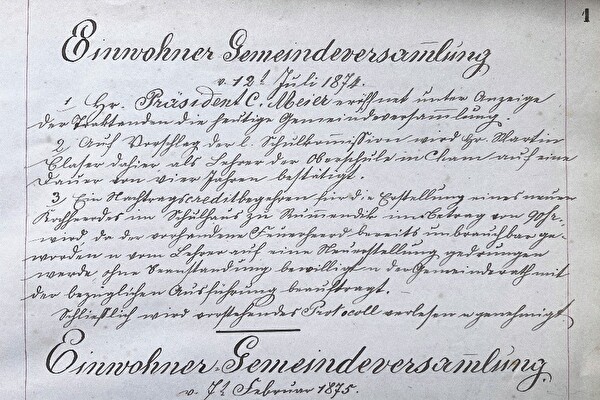 1
Einwohner Gemeindeversam̅lung
v. 12ᵗ Juli 1874.
1. Hr. Präsident C. Meier eröffnet unter Anzeige
der Traktanden die heutige Gemeindeversamlung.
2. Auf Vorschlag der l. Schulkom̅ission wird Hr. Martin
Elaser dahier als Lehrer der Oberschule in Cham auf eine
Dauer von vier Jahren bestätigt.
3. Ein Nachtragscreditbegehren für die Erstellung eines neuen
Kochheerdes im Schulhaus zu Rum̅endik im Betrag von 90 fr.
wird, da der vorhandene Feuerheerd bereits unbrauchbar ge-
worden u vom Lehrer auf eine Neuerstellung gedrungen
werde, ohne Beanstandung bewilligt u der Gemeinderath mit
der bezüglichen Ausführung beauftragt. –
Schließlich wird vorstehendes Protocoll verlesen u genehmigt.
Einwohner-Gemeindeversam̅lung
v. 7ᵗ Februar 1875.